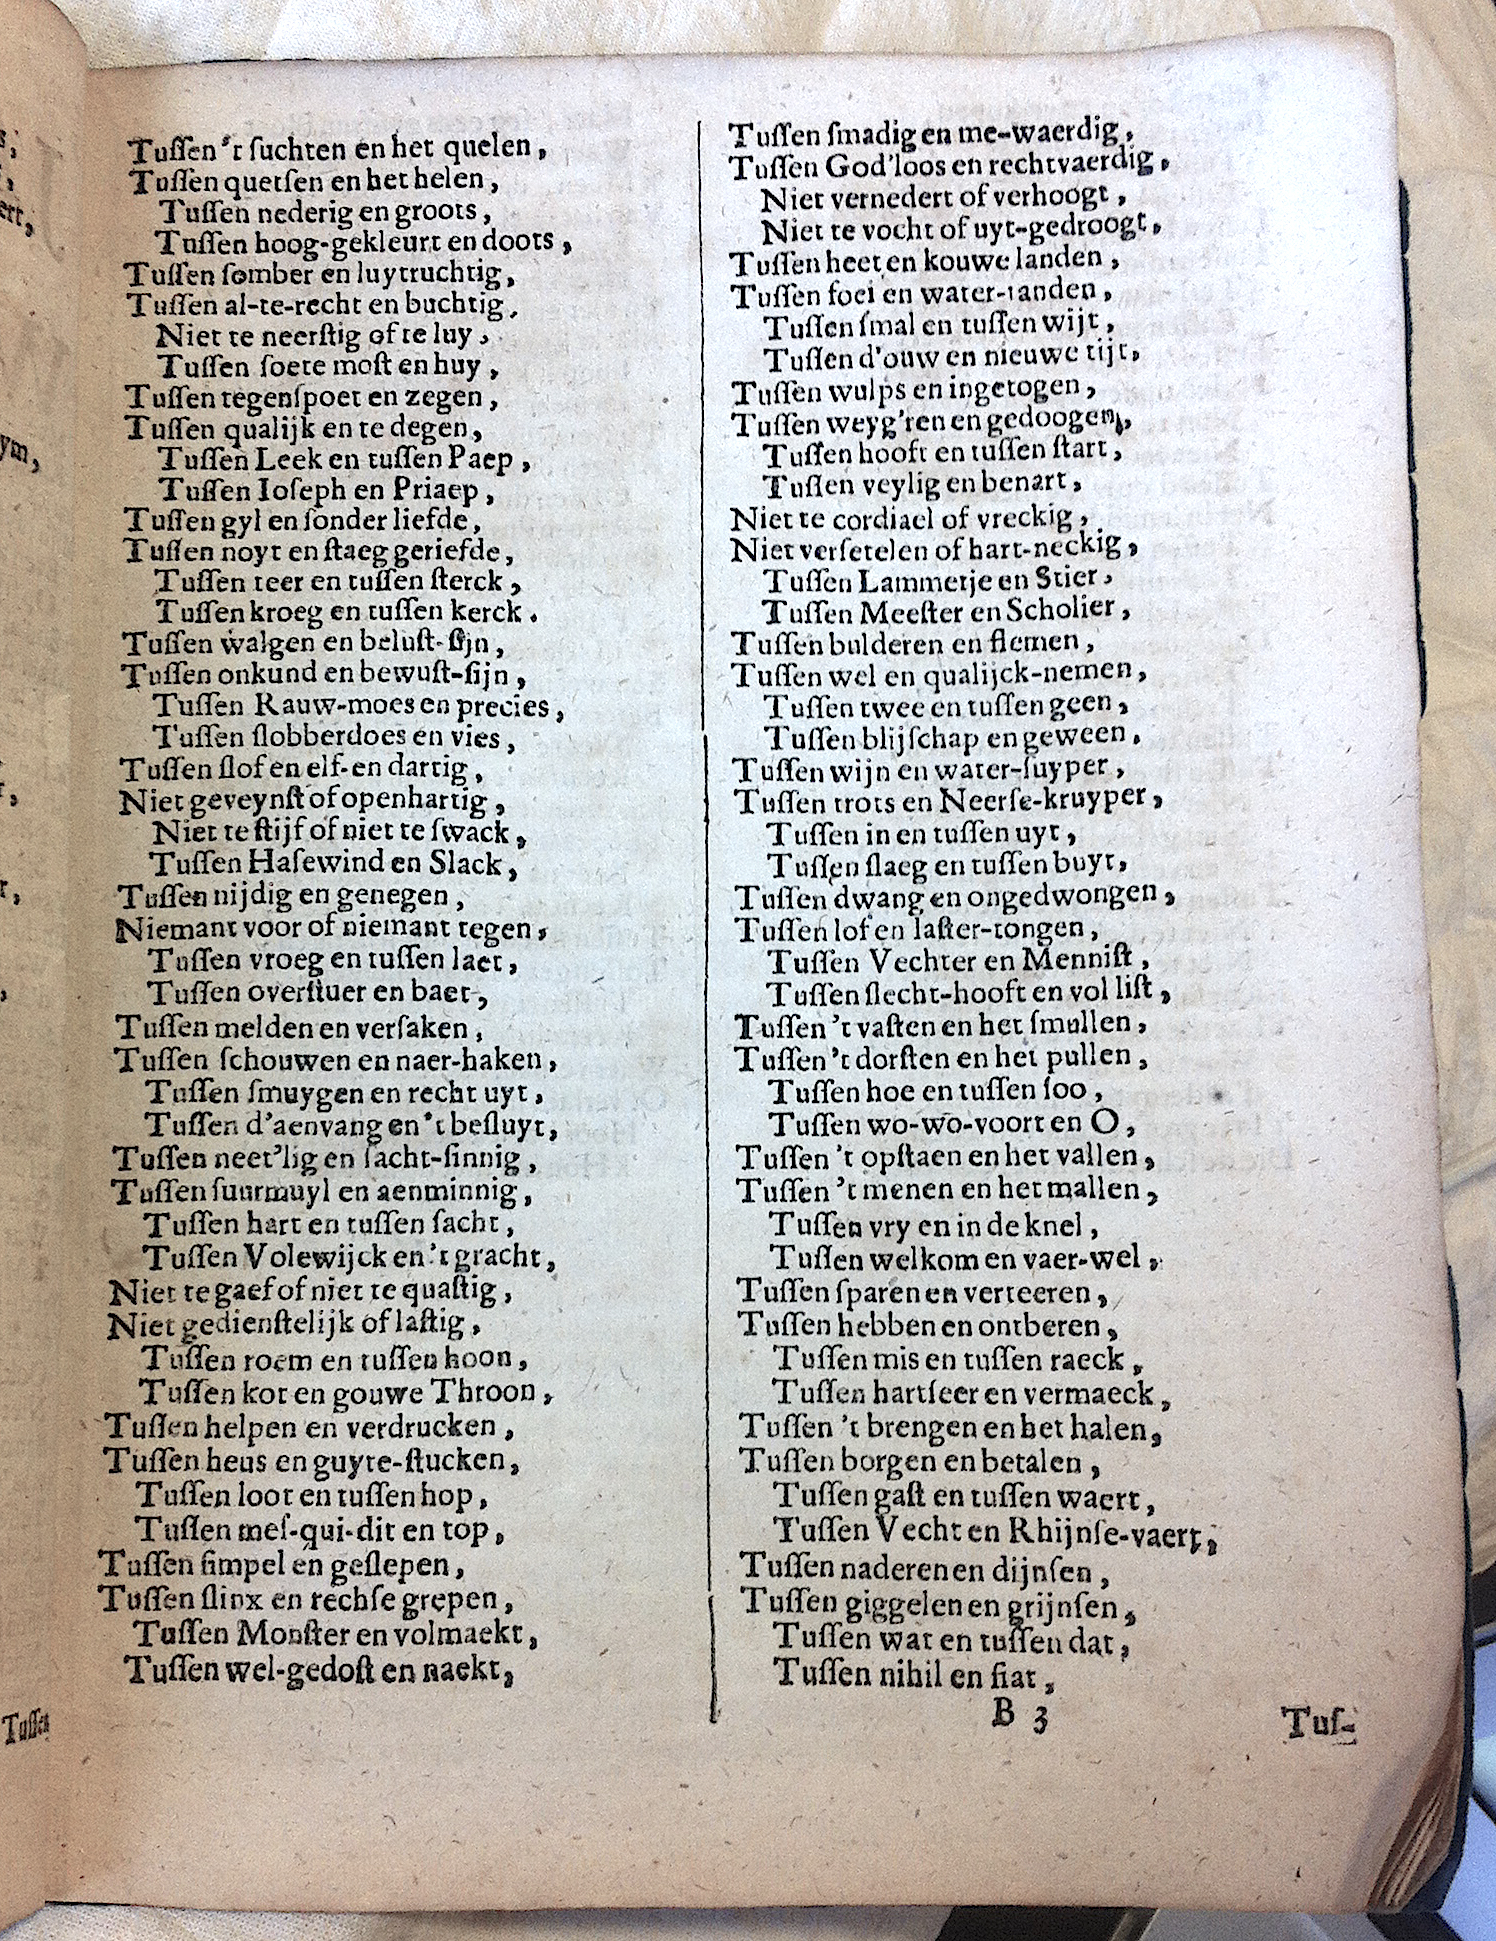 Tuſſen 't ſuchten en het quelen,
Tuſſen quetſen en het helen,
Tuſſen nederig en groots,
Tuſſen hoog-gekleurt en doots,
Tuſſen ſomber en luytruchtig,
Tuſſen al-te-recht en buchtig,
Niet te neerſtig of te luy,
Tuſſen ſoete moſt en huy,
Tuſſen tegenſpoet en zegen,
Tuſſen qualijk en te degen,
Tuſſen Leek en tuſſen Paep,
Tuſſen Ioſeph en Priaep,
Tuſſen gyl en ſonder liefde,
Tuſſen noyt en ſtaeg geriefde,
Tuſſen teer en tuſſen ſterck,
Tuſſen kroeg en tuſſen kerck.
Tuſſen walgen en beluſt-ſijn,
Tuſſen onkund en bewuſt-ſijn,
Tuſſen Rauw-moes en precies,
Tuſſen ſlobberdoes en vies,
Tuſſen ſlof en elf-en dartig,
Niet geveynſt of openhartig,
Niet te ſtijf of niet te ſwack,
Tuſſen Haſewind en Slack,
Tuſſen nijdig en genegen,
Niemant voor of niemant tegen,
Tuſſen vroeg en tuſſen laet,
Tuſſen overſtuer en baet,
Tuſſen melden en verſaken,
Tuſſen ſchouwen en naer-haken,
Tuſſen ſmuygen en recht uyt,
Tuſſen d'aenvang en 't beſluyt,
Tuſſen neet'lig en ſacht-ſinnig,
Tuſſen ſuurmuyl en aenminnig,
Tuſſen hart en tuſſen ſacht,
Tuſſen Volewijck en 't gracht,
Niet te gaef of niet te quaſtig,
Niet gedienſtelijk of laſtig,
Tuſſen roem en tuſſen hoon,
Tuſſen kot en gouwe Throon,
Tuſſen helpen en verdrucken,
Tuſſen heus en guyte-ſtucken,
Tuſſen loot en tuſſen hop,
Tuſſen meſ-qui-dit en top,
Tuſſen ſimpel en geſlepen,
Tuſſen ſlinx en rechſe grepen,
Tuſſen Monſter en volmaekt,
Tuſſen wel-gedoſt en naekt,
Tuſſen ſmadig en me-waerdig,
Tuſſen God'loos en rechtvaerdig,
Niet vernedert of verhoogt,
Niet te vocht of uyt-gedroogt,
Tuſſen heet en kouwe landen,
Tuſſen foei en water-tanden,
Tuſſen ſmal en tuſſen wijt,
Tuſſen d'ouw en nieuwe tijt,
Tuſſen wulps en ingetogen,
Tuſſen weyg'ren en gedoogen,
Tuſſen hooft en tuſſen ſtart,
Tuſſen veylig en benart,
Niet te cordiael of vreckig,
Niet verſetelen of hart-neckig,
Tuſſen Lammetje en Stier,
Tuſſen Meeſter en Scholier,
Tuſſen bulderen en flemen,
Tuſſen wel en qualijck-nemen,
Tuſſen twee en tuſſen geen,
Tuſſen blijſchap en geween.
Tuſſen wijn en water-ſuyper,
Tuſſen trots en Neerſe-kruyper,
Tuſſen in en tuſſen uyt,
Tuſſen ſlaeg en tuſſen buyt,
Tuſſen dwang en ongedwongen,
Tuſſen lof en laſter-tongen,
Tuſſen Vechter en Menniſt,
Tuſſen ſlecht-hooft en vol liſt,
Tuſſen 't vaſten en het ſmullen,
Tuſſen 't dorſten en het pullen,
Tuſſen hoe en tuſſen ſoo,
Tuſſen wo-wo-voort en O,
Tuſſen 't opſtaen en het vallen,
Tuſſen 't menen en het mallen,
Tuſſen vry en in de knel,
Tuſſen welkom en vaer-wel,
Tuſſen ſparen en verteeren,
Tuſſen hebben en ontberen,
Tuſſen mis en tuſſen raeck,
Tuſſen hartſeer en vermaeck,
Tuſſen 't brengen en het halen,
Tuſſen borgen en betalen,
Tuſſen gaſt en tuſſen waert,
Tuſſen Vecht en Rhijnſe-vaert,
Tuſſen naderen en dijnſen,
Tuſſen giggelen en grijnſen,
Tuſſen wat en tuſſen dat,
Tuſſen nihil en fiat,
B 3
Tuſ-
Tuſſen